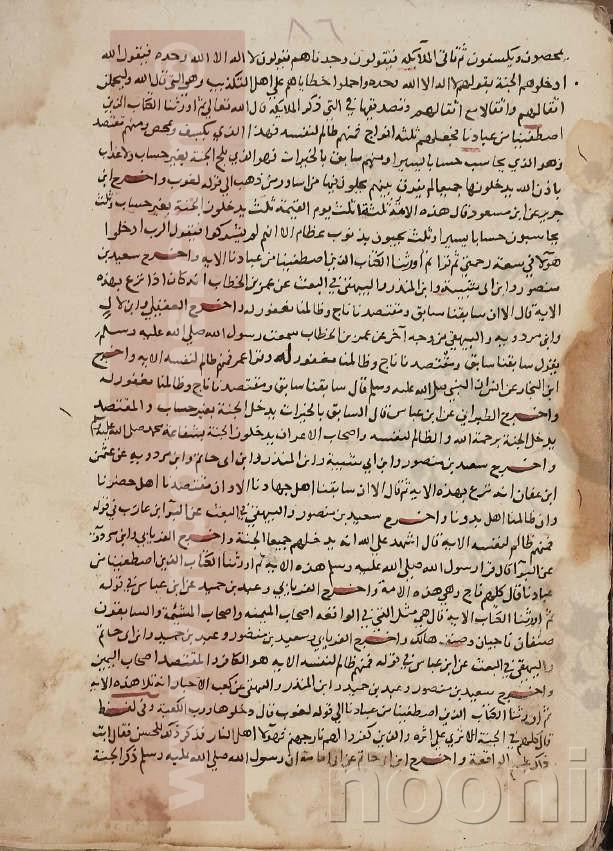 ٨٦
يمحصون ويكسفون ثم تاتي الملائكة فيقولون وجدناهم يقولون لا اله الا الله وحده فيقول الله
ادخلوهم الجنة بقولهم لا اله الا الله وحده واحملوا خطاياهم على اهل التكذيب وهي التي قال الله وليحملن
اثقالهم واثقالا مع اثقالهم وتصديقها في التي ذكر الملائكة قال الله تعالى ثم اورثنا الكتاب الذين
اصطفينا من عبادنا فجعلهم ثلثة افواج فمنهم ظالم لنفسه فهذا الذي يكسف ويمحص ومنهم مقتصد
وهو الذي يحاسب حسابا يسيرا ومنهم سابق بالخيرات فهو الذي يلج الجنة بغير حساب ولا عذاب
باذن الله يدخلونها جميعا لم يفرق بينهم يحلون فيها من اساور من ذهب الى قوله لغوب واخرج ابن
جرير عن ابن مسعود قال هذه الامة ثلثة اثلاث يوم القيمة ثلث يدخلون الجنة بغير حساب وثلث
يحاسبون حسابا يسيرا وثلث يجيئون بذنوب عظام الا انهم لم يشركوا فيقول الرب ادخلوا
هؤلاء في سعة رحمتي ثم قرا ثم اورثنا الكتاب الذين اصطفينا من عبادنا الاية واخرج سعيد بن
منصور وابن ابى شيبة وابن المنذر والبيهقي في البعث عن عمر بن الخطاب انه كان اذا نزع بهذه
الاية قال الا ان سابقنا سابق ومقتصدنا ناج وظالمنا مغفور له واخرج العقيلي وابن لال
وابن مردويه والبيهقي من وجه آخر عن عمر بن الخطاب سمعت رسول الله صلى الله عليه وسلم
يقول سابقنا سابق ومقتصدنا ناج وظالمنا مغفور له وقرا عمر فمنهم ظالم لنفسه الاية واخرج
ابن النجار عن انس ان النبي صلى الله عليه وسلم قال سابقنا سابق ومقتصدنا ناج وظالمنا مغفور له
واخرج الطبراني عن ابن عباس قال السابق بالخيرات يدخل الجنة بغير حساب والمقتصد
يدخل الجنة برحمة الله والظالم لنفسه واصحاب الاعراف يدخلون الجنة بشفاعة محمد صلى الله عليه وسلم
واخرج سعيد بن منصور وابن ابي شيبة وابن المنذر وابن ابى حاتم وابن مردويه عن عثمن
ابن عفان انه نزع بهذه الاية ثم قال الا ان سابقنا اهل جهادنا الا وان مقتصدنا اهل حضرنا
وان ظالمنا اهل بدونا واخرج سعيد بن منصور والبيهقي في البعث عن البراء بن عازب في قوله
فمنهم ظالم لنفسه الاية قال اشهد على الله انه يدخلهم جميعا الجنة واخرج الفريابي وابن مردويه
عن البراء قال قرا رسول الله صلى الله عليه وسلم هذه الاية ثم اورثنا الكتاب الذين اصطفينا من
عبادنا قال كلهم ناج وهي هذه الامة واخرج الفريابي وعبد بن حميد عن ابن عباس في قوله
ثم اورثنا الكتاب الاية قال هي مثل التي في الواقعة اصحاب الميمنة واصحاب المشئمة والسابقون
صنفان ناجيان وصنف هالك واخرج الفريابي وسعيد بن منصور وعبد بن حميد وابن ابي حاتم
والبيهقي في البعث عن ابن عباس في قوله فمنهم ظالم لنفسه الاية هو الكافر والمقتصد اصحاب اليمين
واخرج سعيد بن منصور وعبد بن حميد وابن المنذر والبيهقي عن كعب الاحبار انه تلا هذه الاية
ثم اورثنا الكتاب الذين اصطفينا من عبادنا الى قوله لغوب قال دخلوها ورب الكعبة وفي لفظ
قال كلهم في الجنة الا ترى على اثره والذين كفروا لهم نار جهنم فهؤلاء اهل النار فذكر ذلك للحسن فقال ابت
ذلك عليهم الواقعة واخرج ابن ابى حاتم عن ابى امامة ان رسول الله صلى الله عليه وسلم ذكر الجنة